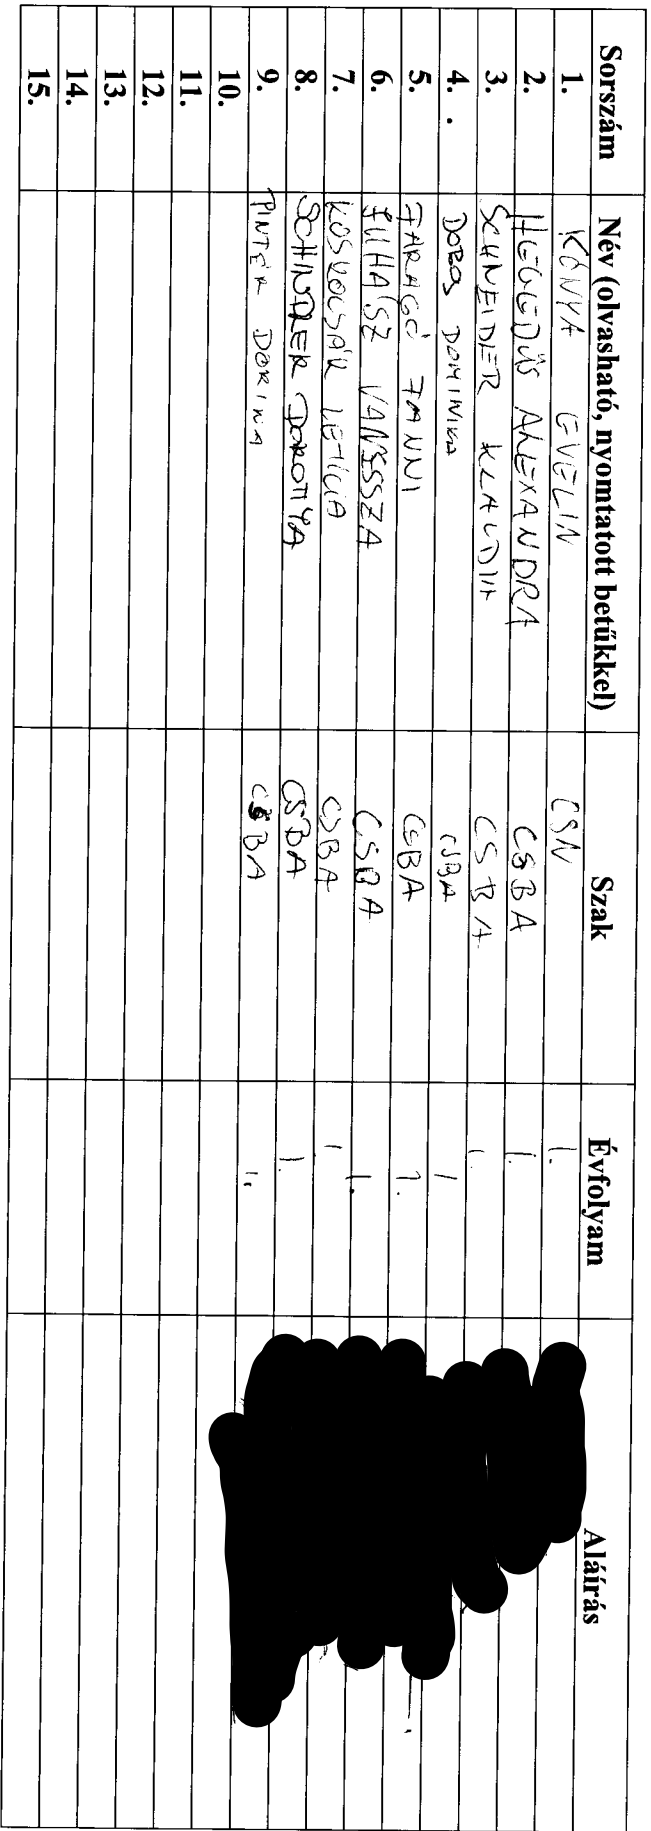 Sorszám Név (olvasható, nyomtatott betűkkel) Szak Évfolyam Aláírás
1. KÓNYA EVELIN CSN 1.
2. HEGEDŰS ALEXANDRA CSBA 1.
3. SCHNEIDER KLAUDIA CSBA 1.
4. . DOBOS DOMINIKA CSBA 1
5. FARAGÓ FANNI CSBA 1.
6. JUHÁSZ VANESSZA CSBA 1.
7. LETÍCIA CSBA 1
8. SCHINDLER DOROTTYA CSBA 1.
9. PINTÉR DORINA CSBA 1.
10.
11.
12.
13.
14.
15.